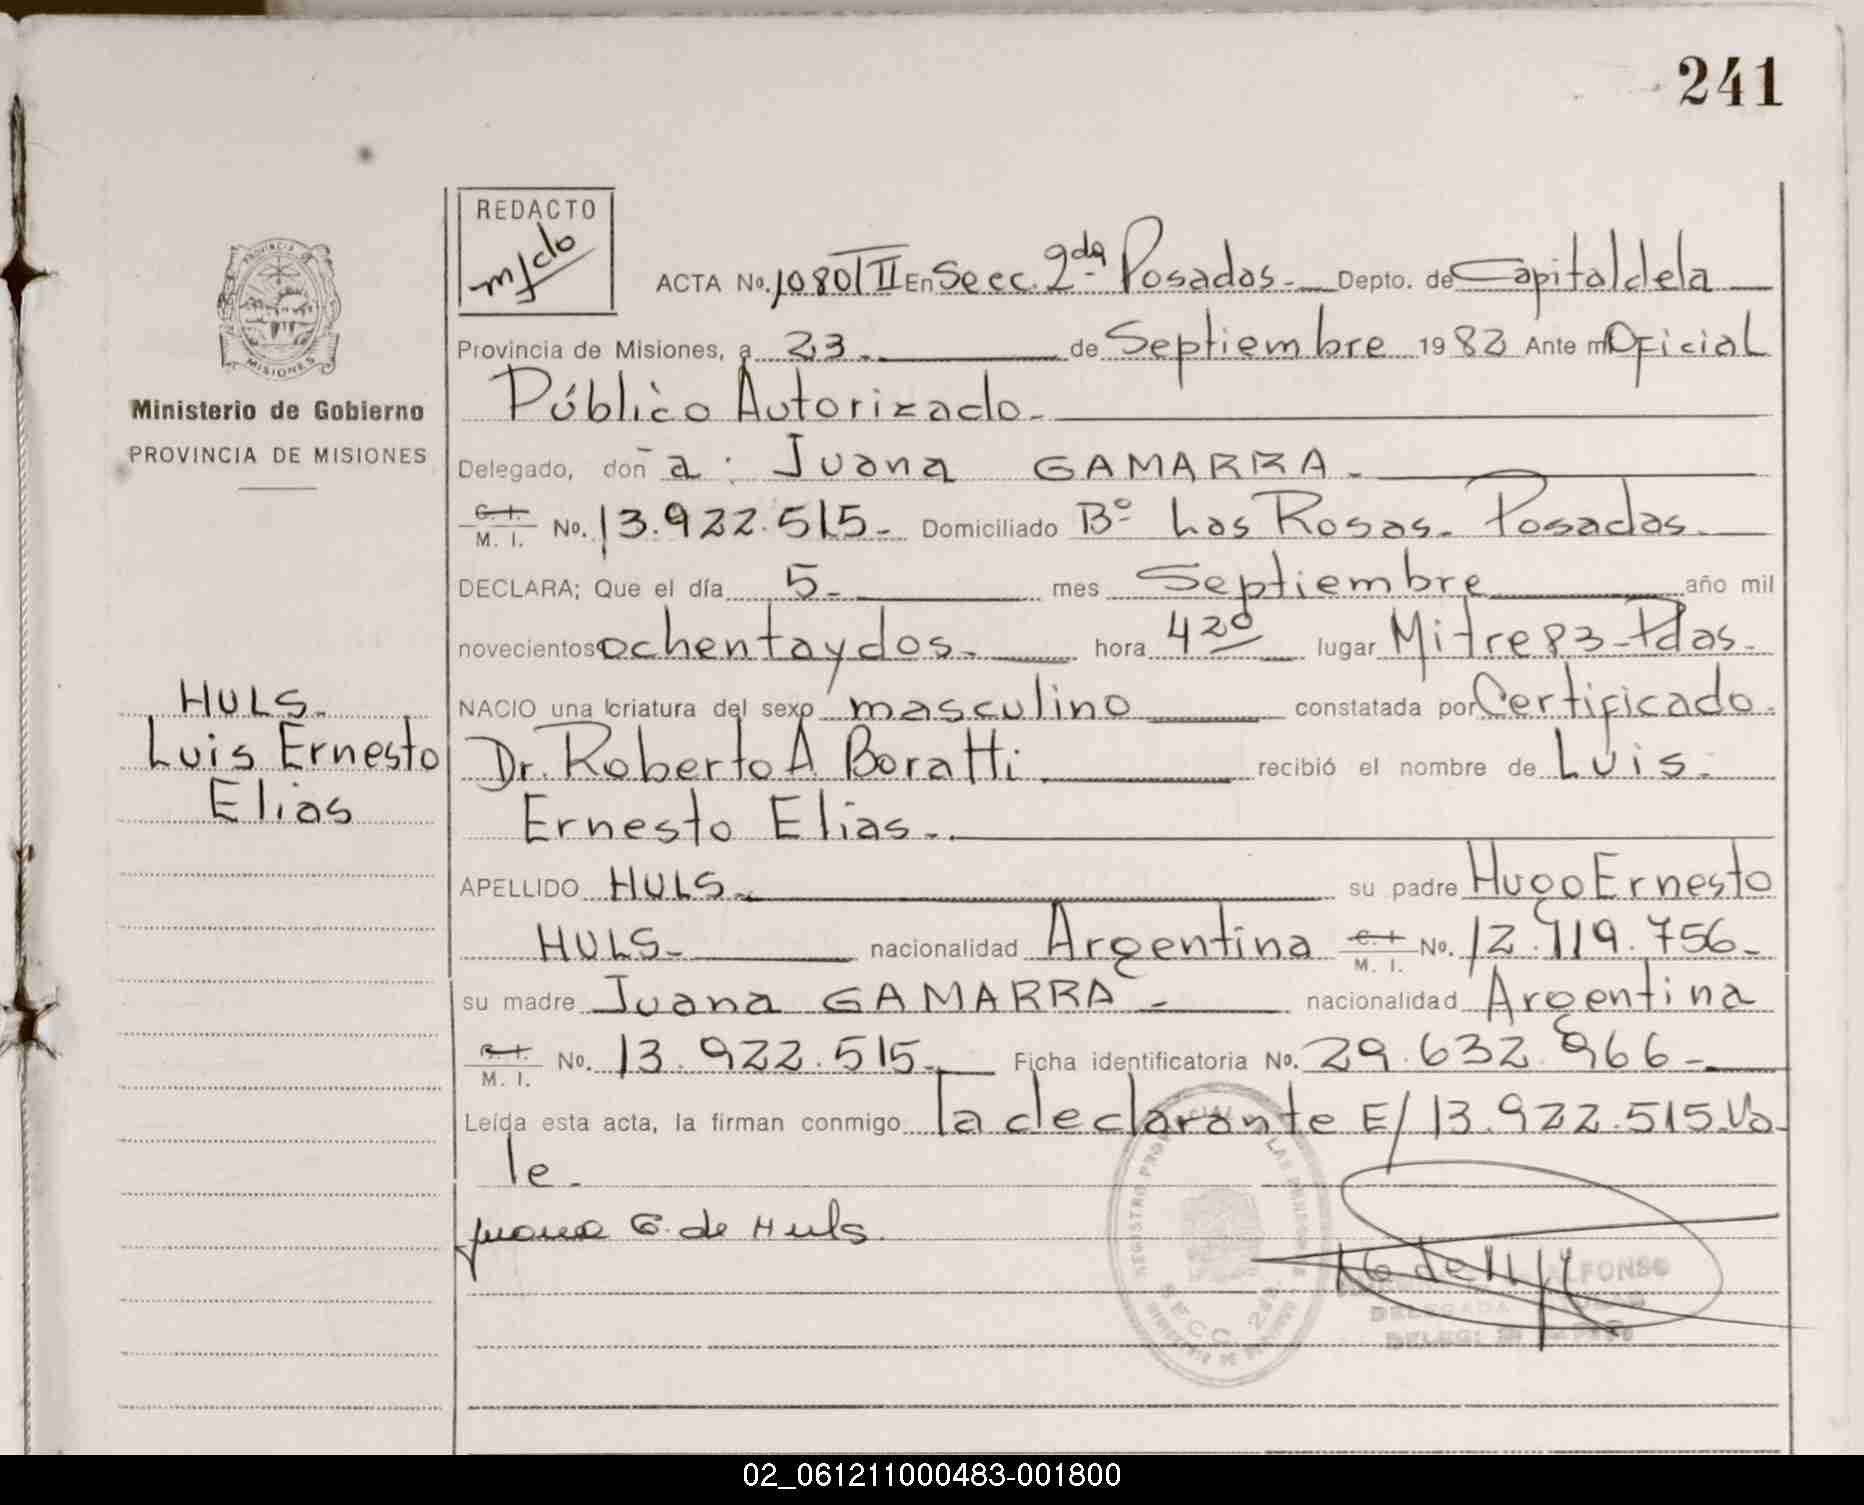 241
REDACTO
ACTA No. 1080 T II En Secc. 2da Posadas.- Depto. de Capital de la
Provincia de Misiones, a 23.- de Septiembre 1982 Ante mi Oficial
Público Autorizado.-
Ministerio de Gobierno
PROVINCIA DE MISIONES
Delegado, don a: Juana GAMARRA.-
C. I. M. I. No. 13.922.515.- Domiciliado Bº Las Rosas.- Posadas.-
DECLARA; Que el día 5.- mes Septiembre año mil
novecientos ochenta y dos.- hora 4 20 lugar Mitre 83- Pdas.-
NACIO una criatura del sexo masculino constatada por Certificado.-
HULS.-
Luis Ernesto
Elias
Dr. Roberto A Boratti recibió el nombre de Luis.-
Ernesto Elias.-
APELLIDO HULS.- su padre Hugo Ernesto
HULS.- nacionalidad Argentina C. I. M. I. No. 12.119.756.-
su madre Juana GAMARRA.- nacionalidad Argentina
M. I. No. 13.922.515.- Ficha identificatoria No. 29.632.966.-
Leída esta acta, la firman conmigo la declarante E/ 13.922.515. Va-
le.-
Juana G. de Huls.
SECC. 2da.
ALFONSO
DELEGADA
02_061211000483-001800